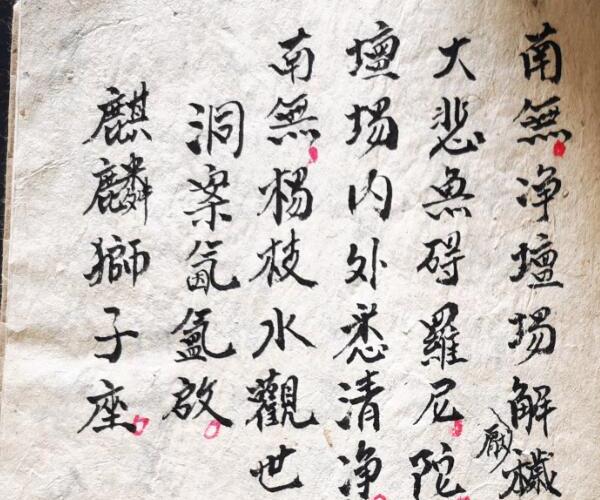 南無净壇場解穢
大悲無碍羅尼陀
壇場内外悉清净
南無楊枝水觀世
洞案氤氳啟
麒麟獅子座